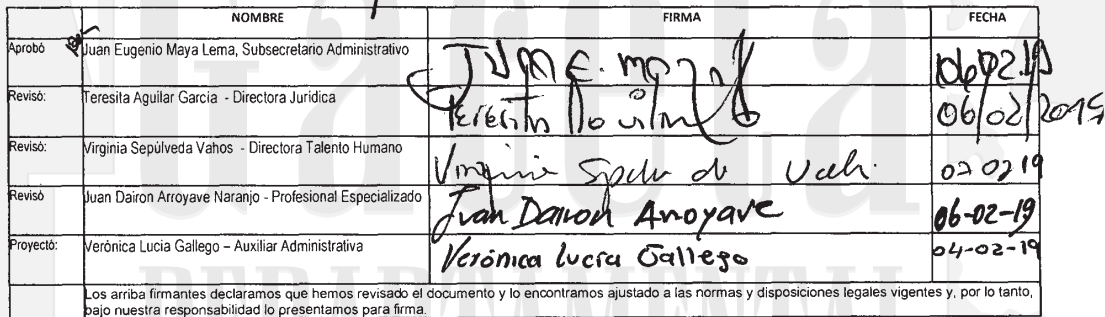 NOMBRE FIRMA FECHA
Aprobó Juan Eugenio Maya Lema, Subsecretario Administrativo 06/02.19
Revisó: Teresita Aguilar García - Directora Jurídica Teresita Aguilar 06/02/2019
Revisó: Virginia Sepúlveda Vahos - Directora Talento Humano Virginia 07 02 19
Revisó Juan Dairon Arroyave Naranjo - Profesional Especializado Juan Dairon Arroyave 06-02-19
Proyectó: Verónica Lucia Gallego – Auxiliar Administrativa Verónica lucía Gallego 04-02-19
Los arriba firmantes declaramos que hemos revisado el documento y lo encontramos ajustado a las normas y disposiciones legales vigentes y, por lo tanto,
bajo nuestra responsabilidad lo presentamos para firma.
Gaceta
DEPARTAMENTAL